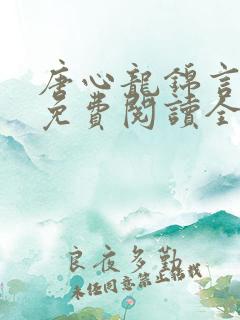 唐心龍錦言
免費閱讀全
良夜多勤
未经同意禁止转载